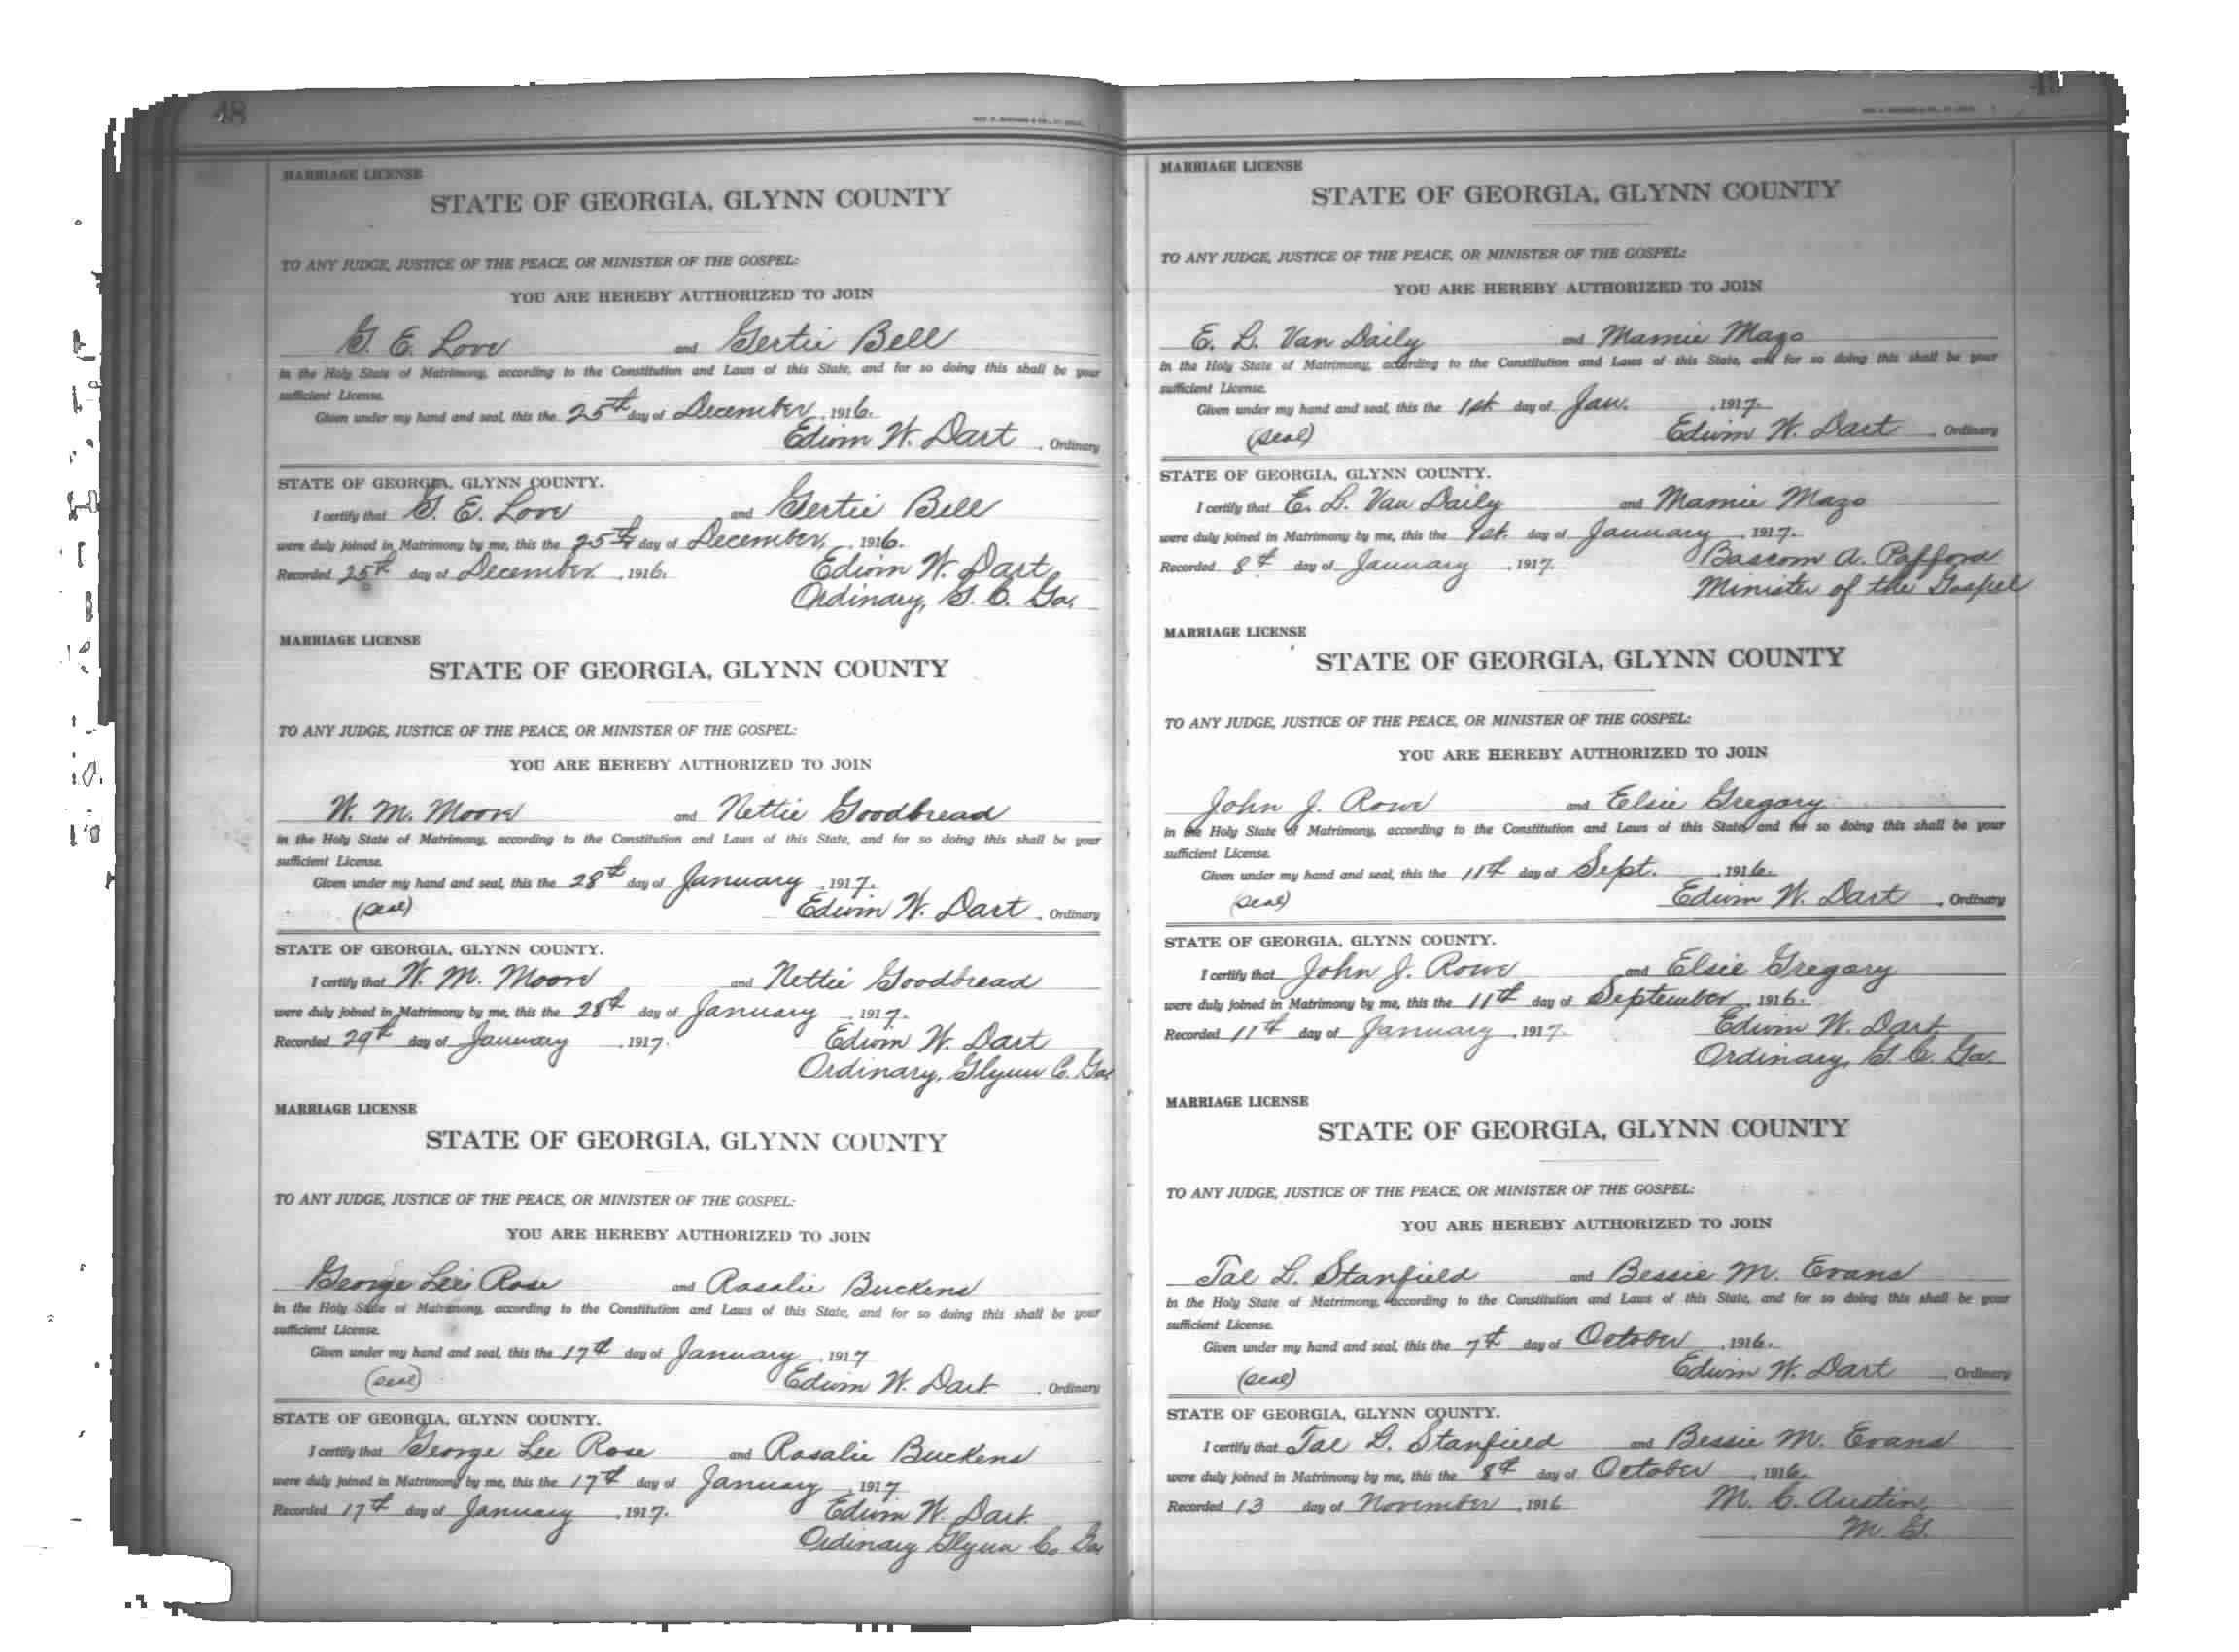 48
MARRIAGE LICENSE
STATE OF GEORGIA, GLYNN COUNTY
TO ANY JUDGE, JUSTICE OF THE PEACE, OR MINISTER OF THE GOSPEL:
YOU ARE HEREBY AUTHORIZED TO JOIN
G. E. Love and Gertie Bell
in the Holy State of Matrimony, according to the Constitution and Laws of this State, and for so doing this shall be your
sufficient License.
Given under my hand and seal, this the 25th day of December, 1916.
Edwin W. Dart, Ordinary
STATE OF GEORGIA, GLYNN COUNTY.
I certify that G. E. Love and Gertie Bell
were duly joined in Matrimony by me, this the 25th day of December, 1916.
Recorded 25th day of December, 1916. Edwin W. Dart
Ordinary, G. C. Ga.
MARRIAGE LICENSE
STATE OF GEORGIA, GLYNN COUNTY
TO ANY JUDGE, JUSTICE OF THE PEACE, OR MINISTER OF THE GOSPEL:
YOU ARE HEREBY AUTHORIZED TO JOIN
W. M. Moore and Nettie Goodbread
in the Holy State of Matrimony, according to the Constitution and Laws of this State, and for so doing this shall be your
sufficient License.
Given under my hand and seal, this the 28th day of January, 1917.
(Seal) Edwin W. Dart, Ordinary
STATE OF GEORGIA, GLYNN COUNTY.
I certify that W. M. Moore and Nettie Goodbread
were duly joined in Matrimony by me, this the 28th day of January, 1917.
Recorded 29th day of January, 1917. Edwin W. Dart
Ordinary, Glynn C. Ga.
MARRIAGE LICENSE
STATE OF GEORGIA, GLYNN COUNTY
TO ANY JUDGE, JUSTICE OF THE PEACE, OR MINISTER OF THE GOSPEL:
YOU ARE HEREBY AUTHORIZED TO JOIN
George Lee Rose and Rosalie Buckens
in the Holy State of Matrimony, according to the Constitution and Laws of this State, and for so doing this shall be your
sufficient License.
Given under my hand and seal, this the 17th day of January, 1917
(Seal) Edwin W. Dart, Ordinary
STATE OF GEORGIA, GLYNN COUNTY.
I certify that George Lee Rose and Rosalie Buckens
were duly joined in Matrimony by me, this the 17th day of January, 1917
Recorded 17th day of January, 1917. Edwin W. Dart
Ordinary Glynn Co Ga
MARRIAGE LICENSE
STATE OF GEORGIA, GLYNN COUNTY
TO ANY JUDGE, JUSTICE OF THE PEACE, OR MINISTER OF THE GOSPEL:
YOU ARE HEREBY AUTHORIZED TO JOIN
E. L. Van Daily and Mamie Mazo
in the Holy State of Matrimony, according to the Constitution and Laws of this State, and for so doing this shall be your
sufficient License.
Given under my hand and seal, this the 1st day of Jan., 1917.
(Seal) Edwin W. Dart, Ordinary
STATE OF GEORGIA, GLYNN COUNTY.
I certify that E. L. Van Daily and Mamie Mazo
were duly joined in Matrimony by me, this the 1st. day of January, 1917.
Recorded 8th day of January, 1917. Bascom A. Pafford
Minister of the Gospel
MARRIAGE LICENSE
STATE OF GEORGIA, GLYNN COUNTY
TO ANY JUDGE, JUSTICE OF THE PEACE, OR MINISTER OF THE GOSPEL:
YOU ARE HEREBY AUTHORIZED TO JOIN
John J. Rowe and Elsie Gregory
in the Holy State of Matrimony, according to the Constitution and Laws of this State, and for so doing this shall be your
sufficient License.
Given under my hand and seal, this the 11th day of Sept., 1916.
(Seal) Edwin W. Dart, Ordinary
STATE OF GEORGIA, GLYNN COUNTY.
I certify that John J. Rowe and Elsie Gregory
were duly joined in Matrimony by me, this the 11th day of September, 1916.
Recorded 11th day of January, 1917. Edwin W. Dart
Ordinary, G. C. Ga.
MARRIAGE LICENSE
STATE OF GEORGIA, GLYNN COUNTY
TO ANY JUDGE, JUSTICE OF THE PEACE, OR MINISTER OF THE GOSPEL:
YOU ARE HEREBY AUTHORIZED TO JOIN
Tal L. Stanfield and Bessie M. Evans
in the Holy State of Matrimony, according to the Constitution and Laws of this State, and for so doing this shall be your
sufficient License.
Given under my hand and seal, this the 7th day of October, 1916.
(Seal) Edwin W. Dart, Ordinary
STATE OF GEORGIA, GLYNN COUNTY.
I certify that Tal L. Stanfield and Bessie M. Evans
were duly joined in Matrimony by me, this the 8th day of October, 1916
Recorded 13 day of November, 1916 M. C. Austin,
M. G.